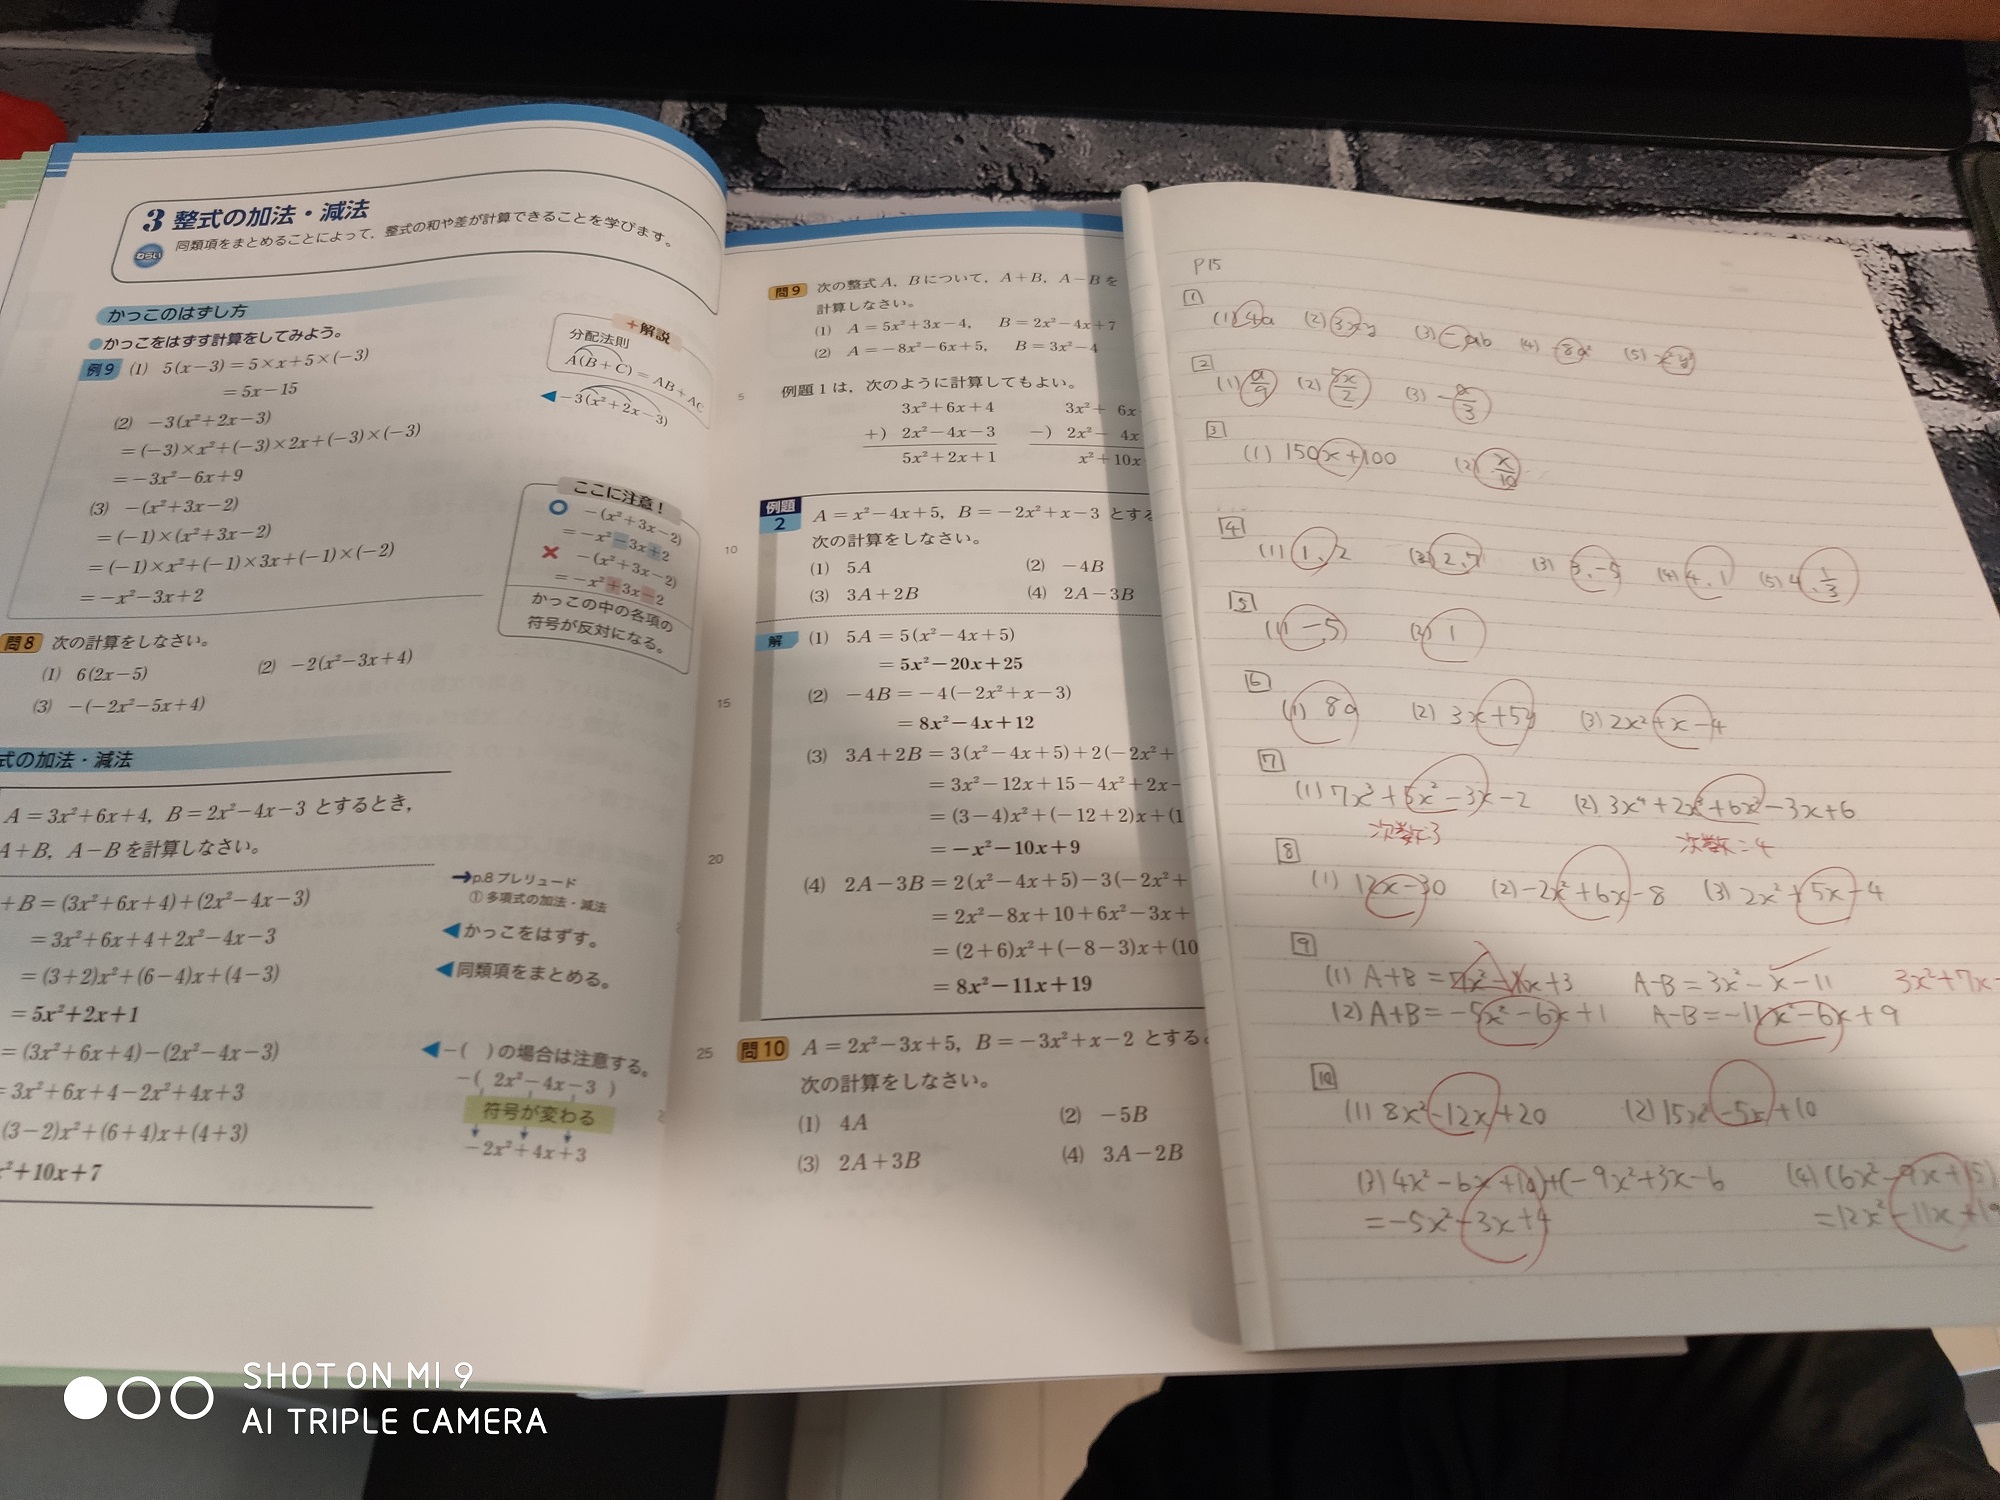 3 整式の加法・減法
ねらい 同類項をまとめることによって,整式の和や差が計算できることを学びます。
かっこのはずし方
●かっこをはずす計算をしてみよう。
例9 (1) 5(x−3)=5×x+5×(−3)
=5x−15
(2) −3(x²+2x−3)
=(−3)×x²+(−3)×2x+(−3)×(−3)
=−3x²−6x+9
(3) −(x²+3x−2)
=(−1)×(x²+3x−2)
=(−1)×x²+(−1)×3x+(−1)×(−2)
=−x²−3x+2
+解説
分配法則
A(B+C)=AB+AC
◀−3(x²+2x−3)
ここに注意!
○ −(x²+3x−2)
=−x²−3x+2
× −(x²+3x−2)
=−x²+3x−2
かっこの中の各項の
符号が反対になる。
問8 次の計算をしなさい。
(1) 6(2x−5) (2) −2(x²−3x+4)
(3) −(−2x²−5x+4)
式の加法・減法
A=3x²+6x+4, B=2x²−4x−3 とするとき,
A+B, A−Bを計算しなさい。
+B=(3x²+6x+4)+(2x²−4x−3)
=3x²+6x+4+2x²−4x−3
=(3+2)x²+(6−4)x+(4−3)
=5x²+2x+1
=(3x²+6x+4)−(2x²−4x−3)
=3x²+6x+4−2x²+4x+3
(3−2)x²+(6+4)x+(4+3)
x²+10x+7
→p.8 プレリュード
①多項式の加法・減法
◀かっこをはずす。
◀同類項をまとめる。
◀−( )の場合は注意する。
−( 2x²−4x−3 )
符号が変わる
−2x²+4x+3
問9 次の整式A, Bについて, A+B, A−Bを
計算しなさい。
(1) A=5x²+3x−4, B=2x²−4x+7
(2) A=−8x²−6x+5, B=3x²−4
5 例題1は,次のように計算してもよい。
3x²+6x+4 3x²+ 6x
+) 2x²−4x−3 −) 2x²− 4x
5x²+2x+1 x²+10x
例題2 A=x²−4x+5, B=−2x²+x−3 とする
10 次の計算をしなさい。
(1) 5A (2) −4B
(3) 3A+2B (4) 2A−3B
解 (1) 5A=5(x²−4x+5)
=5x²−20x+25
15 (2) −4B=−4(−2x²+x−3)
=8x²−4x+12
(3) 3A+2B=3(x²−4x+5)+2(−2x²+
=3x²−12x+15−4x²+2x−
=(3−4)x²+(−12+2)x+(1
20 =−x²−10x+9
(4) 2A−3B=2(x²−4x+5)−3(−2x²+
=2x²−8x+10+6x²−3x+
=(2+6)x²+(−8−3)x+(10
=8x²−11x+19
25 問10 A=2x²−3x+5, B=−3x²+x−2 とする
次の計算をしなさい。
(1) 4A (2) −5B
(3) 2A+3B (4) 3A−2B
P15
1
(1) 4a (2) 3xy (3) −ab (4) −8a² (5) −x²y²
2
(1) a/9 (2) 5x/2 (3) −a/3
3
(1) 150x+100 (2) x/10
4
(1) 1, 2 (2) 2, 7 (3) 3, −5 (4) 4, 1 (5) 4, 1/3
5
(1) −5 (2) 1
6
(1) 8a (2) 3x+5y (3) 2x²+x−4
7
(1) 7x³+5x²−3x−2 (2) 3x⁴+2x³+6x²−3x+6
次数:3 次数=4
8
(1) 12x−30 (2) −2x²+6x−8 (3) 2x²+5x−4
9
(1) A+B=7x²−1x+3 A−B=3x²−x−11 3x²+7x−
(2) A+B=−5x²−6x+1 A−B=−11x²−6x+9
10
(1) 8x²−12x+20 (2) 15x²−5x+10
(3) 4x²−6x+10)+(−9x²+3x−6 (4) (6x²−9x+15)
=−5x²−3x+4 =12x²−11x+19
SHOT ON MI 9
AI TRIPLE CAMERA